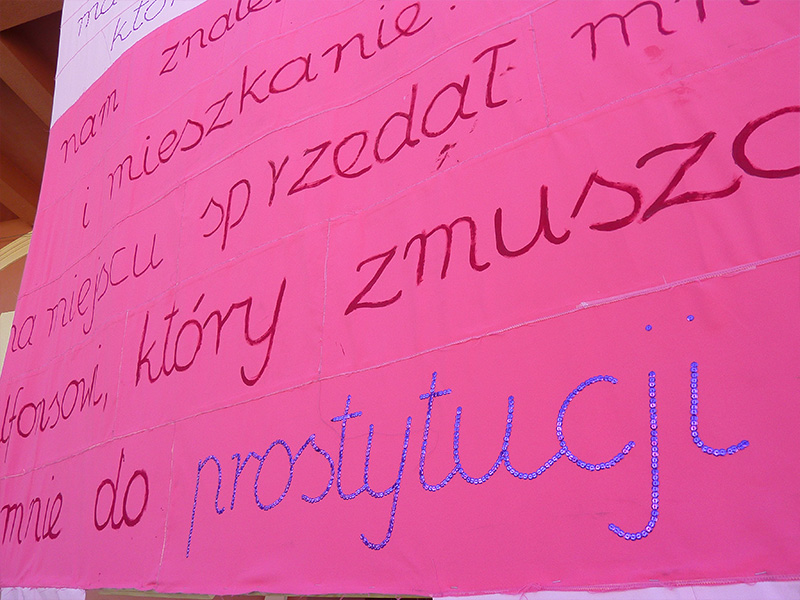 nam znale
i mieszkanie.
na miejscu sprzedał mn
lfonsowi, który zmusza
mnie do prostytucji